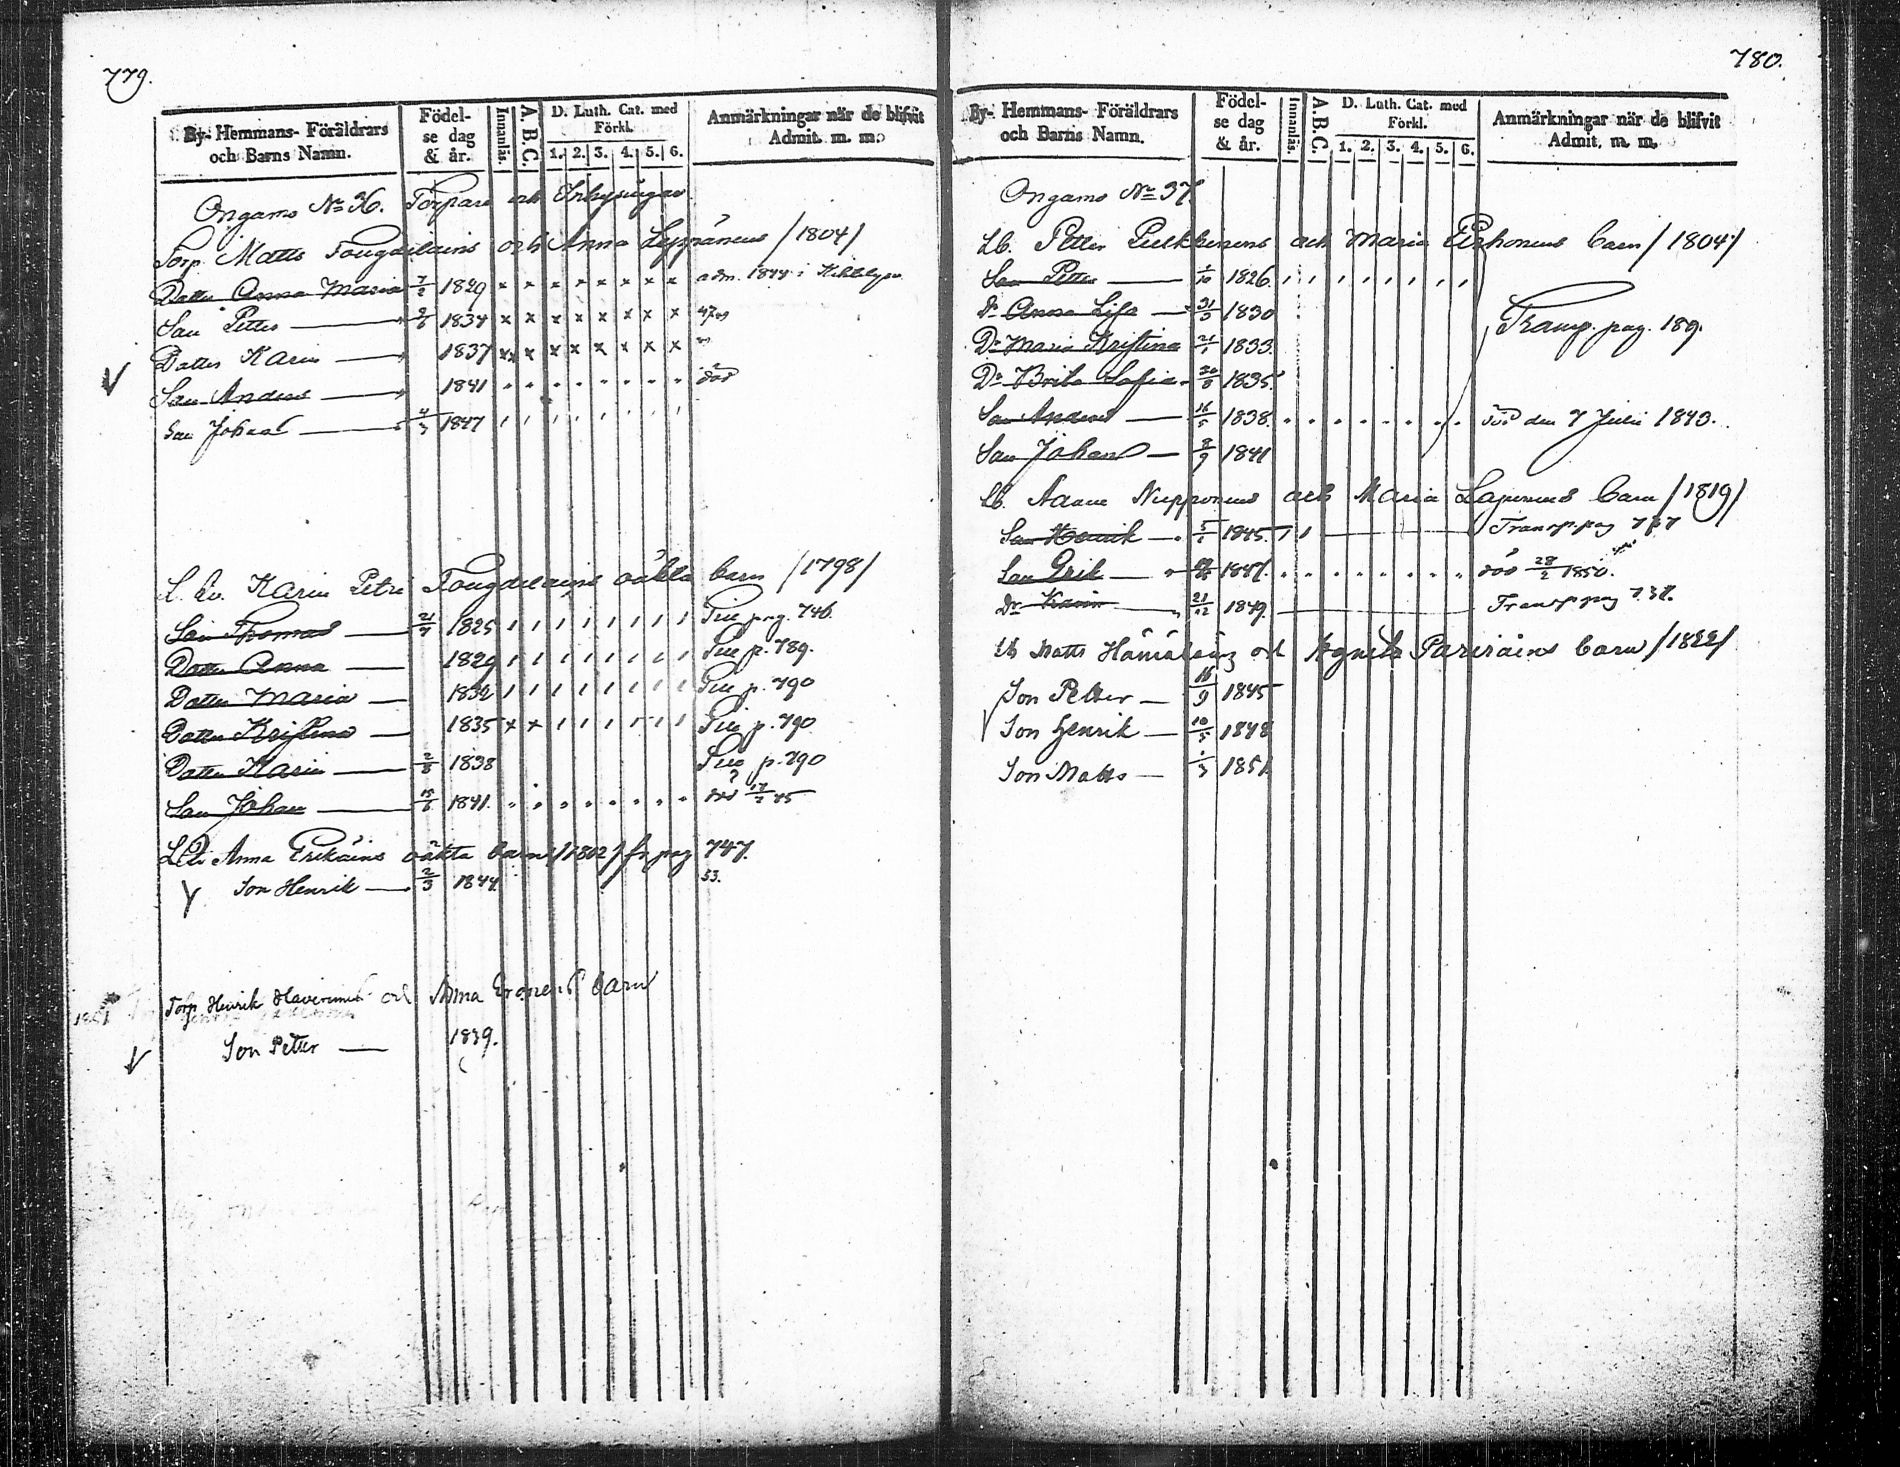 779.
By- Hemmans- Föräldrars och Barns Namn.
Födelse dag & år.
Innanläs.
A.B.C.
D. Luth. Cat. med Förkl.
1. 2. 3. 4. 5. 6.
Anmärkningar när de blifvit Admit. m. m.
Ongamo No 36. Torpare och Inhysingar
Torp. Matts Tougdilains och Anna Leppänens /1804/
Dotter Anna Maria 7/2 1829 × × × × × × × × adm. 1844 i
Son Petter 2/6 1834 × × × × × × × × 47
Dotter Karin 1837 × × × × × × × ×
Son Anders 1841 död
Son Johan 4/3 1847
L. Karin Petri Tougdilains oäkta barn /1798/
Son Thomas 21/7 1825 Til pag. 746.
Dotter Anna 1829 Til p. 789.
Dotter Maria 1832 Til p. 790
Dotter Kristina 1835 × × Til p. 790
Dotter Karin 2/8 1838 Til p. 790
Son Johan 15/6 1841. död 17/2 45
Anna Erikäins oäkta barn /1802/ fr pag 747.
Son Henrik 2/3 1844. 53.
Torp Henrik Haverinens och Anna Eronens barn
Son Petter 1839.
780.
By- Hemmans- Föräldrars och Barns Namn.
Födelse dag & år.
Innanläs.
A.B.C.
D. Luth. Cat. med Förkl.
1. 2. 3. 4. 5. 6.
Anmärkningar när de blifvit Admit. m. m.
Ongamo No 37.
Lb. Petter Pulkkinens och Maria Pirhonens barn /1804/
Son Petter 1/10 1826.
Dr Anna Lisa 31/3 1830
Dr Maria Kristina 21/1 1833. Transp. pag. 189.
Dr Brita Sofia 20/8 1835.
Son Anders 16/5 1838. död den 7 Julii 1843.
Son Johan 8/9 1841
Lb. Adam Nupponens och Maria Lapinens barn /1819/
Son Henrik 1845. Transp. pag 737
Son Erik 1847. död 28/2 1850.
Dr Karin 21/12 1849. Transp. pag 737.
Lb Matts Hämäläinz och Agneta Pariräins barn /1822/
Son Petter 16/9 1845
Son Henrik 10/5 1848
Son Matts 1/3 1851